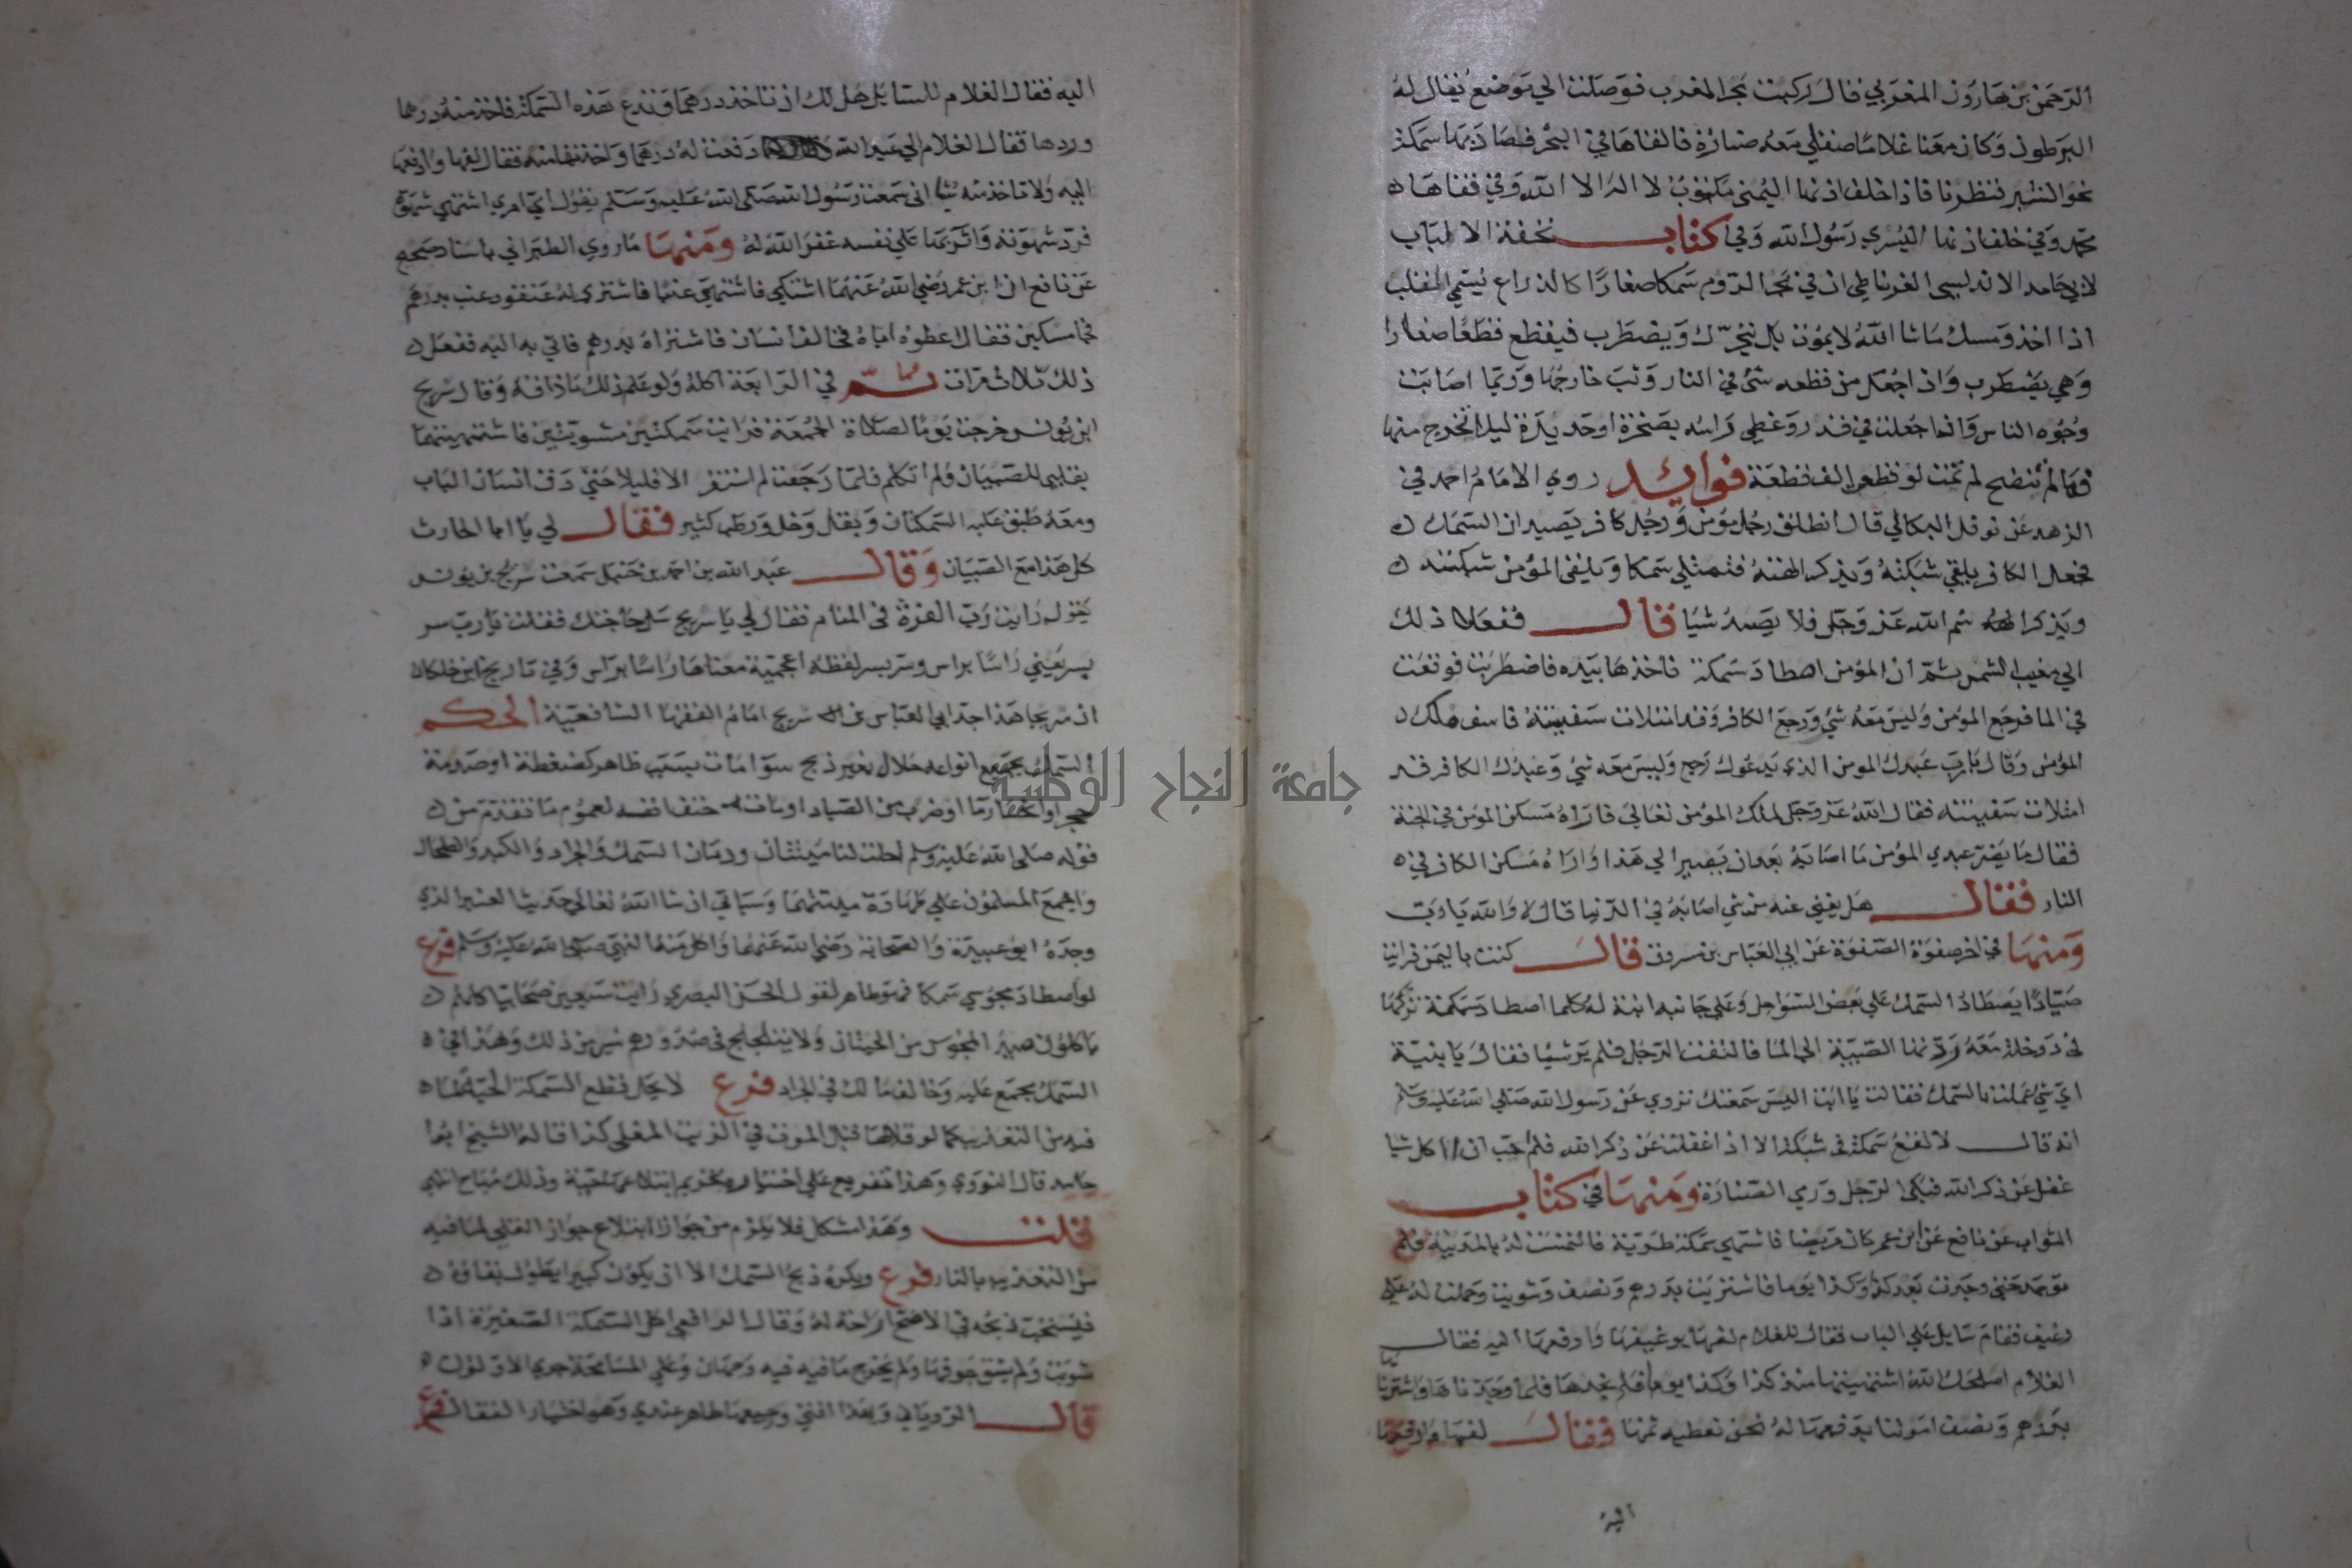 الرحمن بن هارون المغربي قال ركبت بحر المغرب فوصلنا الي موضع يقال له
البرطون وكان معنا غلاما صقلي معه صنارة فالقاها في البحر فصاد بها سمكة
نحو الشبر فنظرنا فاذا خلف اذنها اليمني مكتوب لا اله الا الله وفي قفاها
محمد وفي خلف اذنها اليسري رسول الله وفي كتاب تحفة الالباب
لابي حامد الاندلسي الغرناطي ان في بحر الروم سمكا صغارا كالذراع يسمي المغلب
اذا اخذ ومسك ماشا الله لا يموت بل يتحرك ويضطرب فيقطع قطعا صغارا
وهي يضطرب واذا جعل من قطعه شئ في النار وثب خارجها وربما اصابت
وجوه الناس واذا جعلت في قدر وغطي راسه بصخرة او حديدة ليلا تخرج منها
فما لم تنضج لم تمت لو قطعوا الف قطعة فوايد روي الامام احمد في
الزهد عن نوفل البكالي قال انطلق رجل مومن ورجل كافر يصيدان السمك
فجعل الكافر يلقي شبكته ويذكر الهته فتمتلي سمكا ويلقي المؤمن شبكته
ويذكر اسم الله عز وجل فلا يصيد شيا قال ففعلا ذلك
الي مغيب الشمس ثم ان المؤمن اصطاد سمكة فاخذها بيده فاضطربت فوقعت
في الما فرجع المومن وليس معه شي ورجع الكافر وقد امتلات سفينته فاسف ملك
المؤمن وقال يارب عبدك المومن الذي يدعوك رجع وليس معه شي وعبدك الكافر قد
امتلات سفينته فقال الله عز وجل لملك المؤمن تعالي فاراه مسكن المؤمن في الجنة
فقال ما يضر عبدي المؤمن ما اصابه بعد ان يصير الي هذا واراه مسكن الكافر في
النار فقال هل يغني عنه من شي اصابه في الدنيا قال لا والله يارب
ومنها في اخر صفوة الصفوة عن ابي العباس بن مسروق قال كنت باليمن فرايت
صيادا يصطاد السمك علي بعض السواحل وعلي جانبه ابنة له كلما اصطاد سمكة تركها
في دوخلة معه ردتها الصبية الي الما فالتفت الرجل فلم ير شيا فقال يا بنية
اي شي عملت بالسمك فقالت يا ابت اليس سمعتك تروي عن رسول الله صلي الله عليه وسلم
انه قال لا تقع سمكة في شبكة الا اذا غفلت عن ذكر الله فلم احب ان ااكل شيا
غفل عن ذكر الله فبكي الرجل ورمي الصنارة ومنها في كتاب
الثواب عن نافع عن ابن عمر كان مريضا فاشتهي سمكة طرية فالتمست له بالمدينة فلم
توجد حتي وجدت بعد كذا وكذا يوما فاشتريت بدرهم ونصف وشويت وحملت له علي
رغيف فقام سايل علي الباب فقال للغلام لفها برغيفها وادفعها اليه فقال
الغلام اصلحك الله اشتهيتها منذ كذا وكذا يوما فلم نجدها فلما وجدناها واشتريناها
بدرهم ونصف امرتنا بدفعها له نحن نعطيه ثمنها فقال لفها وادفعها
اليه
اليه فقال الغلام للسايل هل لك ان تاخذ درهما وتدع هذه السمكة فاخذ منه درهما
وردها فقال الغلام الي عبد الله دفعت له درهما واخذتها منه فقال لفها وادفعها
اليه ولا تاخذ منه شيا اني سمعت رسول الله صلي الله عليه وسلم يقول اي امري اشتهي شهوة
فرد شهوته واثر بها علي نفسه غفر الله له ومنها ما روي الطبراني باسناد صحيح
عن نافع ان ابن عمر رضي الله عنهما اشتكي فاشتهي عنبا فاشتري له عنقود عنب بدرهم
فجا مسكين فقال اعطوه اياه فخالف انسان فاشتراه بدرهم فاتي به اليه ففعل
ذلك ثلاث مرات ثم في الرابعة اكله ولو علم ذلك ما ذاقه وقال سريج
ابن يونس خرجت يوما لصلاة الجمعة فرايت سمكتين مشويتين فاشتهيتهما
بقلبي للصبيان ولم اتكلم فلما رجعت لم استقر الا قليلا حتي دق انسان الباب
ومعه طبق عليه السمكتان وبقل وخل ورطب كثير فقال لي يا ابا الحارث
كل هذا مع الصبيان وقال عبد الله بن احمد بن حنبل سمعت سريج بن يونس
يقول رايت رب العزة في المنام فقال لي يا سريج سل حاجتك فقلت يا رب سر
بسر يعني راسا براس وسر بسر لفظة اعجمية معناها راسا براس وفي تاريخ ابن خلكان
ان سريجا هذا جد ابي العباس بن سريج امام الفقها الشافعية الحكم
السمك بجميع انواعه حلال بغير ذبح سوا مات بسبب ظاهر كضغطة او صدمة
حجر او انحسار ما او ضرب من الصياد او مات حتف انفه لعموم ما تقدم من
قوله صلي الله عليه وسلم احلت لنا ميتتان ودمان السمك والجراد والكبد والطحال
واجمع المسلمون علي طهارة ميتتهما وسياتي ان شا الله تعالي حديث العنبر الذي
وجده ابو عبيدة والصحابة رضي الله عنهما واكل منه النبي صلي الله عليه وسلم فرع
لو اصطاد مجوسي سمكا فهو طاهر لقول الحسن البصري رايت سبعين صحابيا كلهم
ياكلون صيد المجوس من الحيتان ولا يتلجلج في صدورهم شي من ذلك وهذا في
السمك مجمع عليه وخالف مالك في الجراد فرع لا يحل قطع السمكة الحية لما
فيه من التعذيب كما لو قلاها قبل الموت في الزيت المغلي كذا قاله الشيخ ابو
حامد قال النووي وهذا تفريع علي اختياره تحريم ابتلاعها حية وذلك مباح انتهي
قلت وهذا مشكل فلا يلزم من جواز ابتلاع جواز القلي لما فيه
من التعذيب بالنار فرع ويكره ذبح السمك الا ان يكون كبيرا يطول بقاؤه
فيستحب ذبحه في الاصح اراحة له وقال الرافعي اكل السمكة الصغيرة اذا
شويت ولم يشق جوفها ولم يخرج ما فيه فيه وجهان وعلي المسامحة جري الاولون
قال الروياني وبهذا افتي وجميعها طاهر عندي وهو اختيار القفال فرع
جامعة النجاح الوطنية